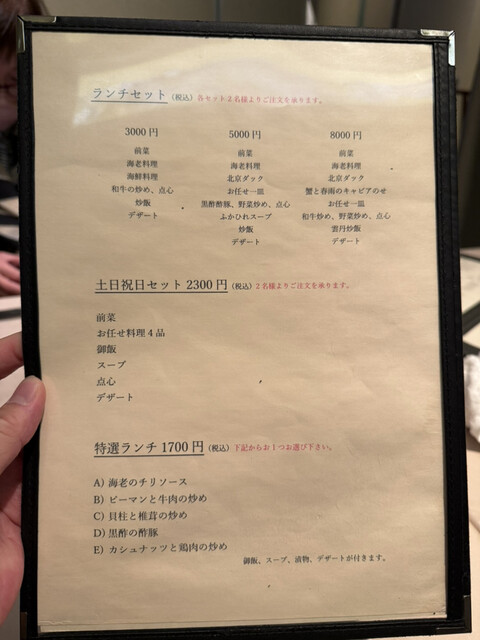 ランチセット（税込）各セット２名様よりご注文を承ります。
3000 円
前菜
海老料理
海鮮料理
和牛の炒め、点心
炒飯
デザート
5000 円
前菜
海老料理
北京ダック
お任せ一皿
黒酢酢豚、野菜炒め、点心
ふかひれスープ
炒飯
デザート
8000 円
前菜
海老料理
北京ダック
蟹と春雨のキャビアのせ
お任せ一皿
和牛炒め、野菜炒め、点心
雲丹炒飯
デザート
土日祝日セット 2300 円（税込）２名様よりご注文を承ります。
前菜
お任せ料理４品
御飯
スープ
点心
デザート
特選ランチ 1700 円（税込）下記からお１つお選び下さい。
A) 海老のチリソース
B) ピーマンと牛肉の炒め
C) 貝柱と椎茸の炒め
D) 黒酢の酢豚
E) カシュナッツと鶏肉の炒め
御飯、スープ、漬物、デザートが付きます。